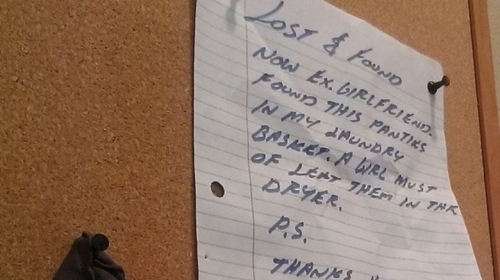 LOST & FOUND
NOW EX. GIRLFRIEND.
FOUND THIS PANTIES
IN MY LAUNDRY
BASKET. A GIRL MUST
OF LEFT THEM IN THE
DRYER.
P.S.
THANKS